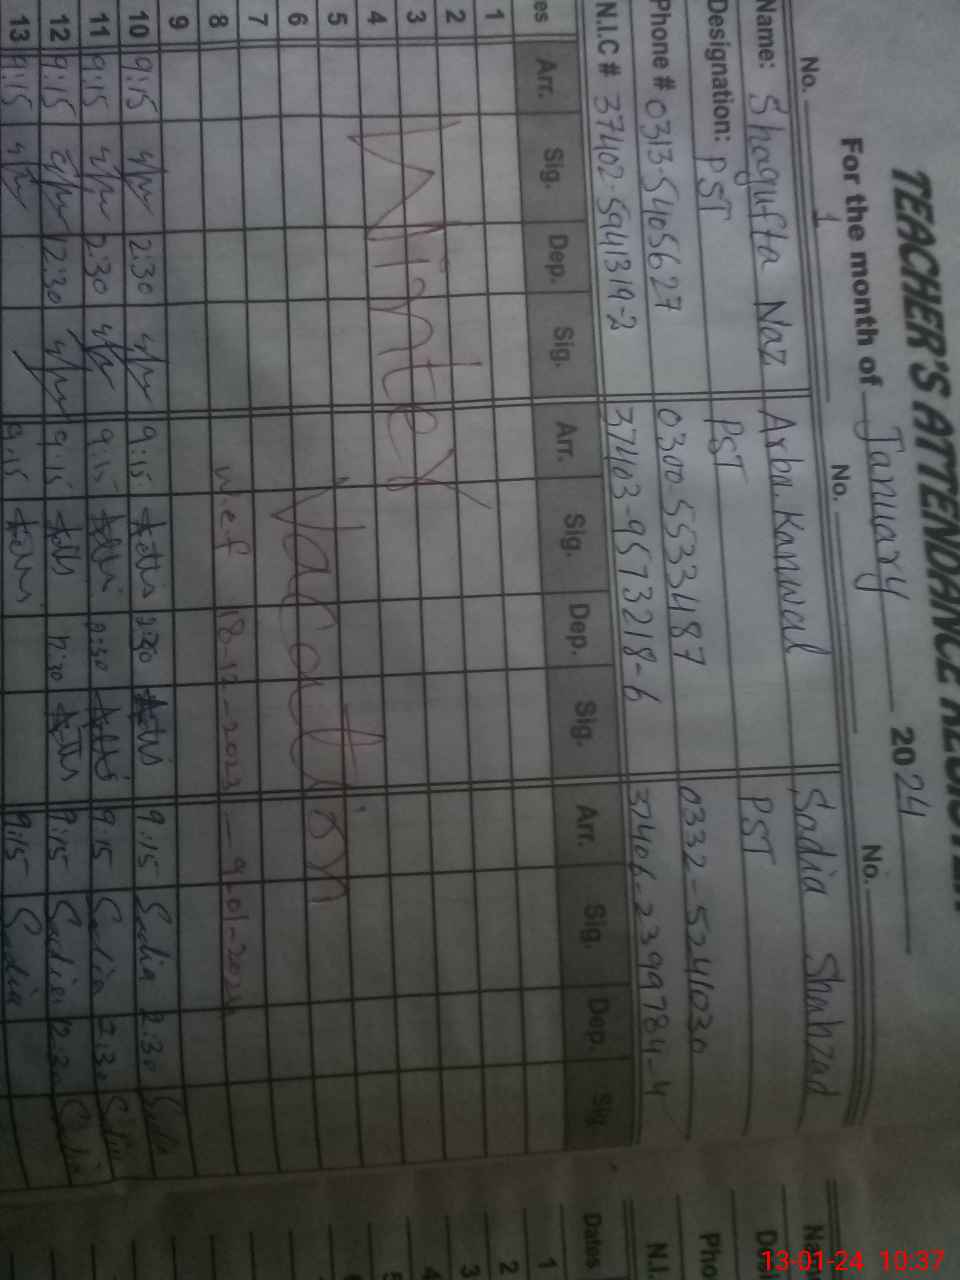 TEACHER'S ATTENDANCE REGISTER
For the month of January 2024
No. 1 No. No.
Name: Shagufta Naz Arba.Kanwal Sadia Shahzad
Designation: PST PST PST
Phone # 0313-5405627 0300-5533487 0332-5241030
N.I.C # 37402-5941319-2 37403-9573218-6 37406-2399784-4
es Arr. Sig. Dep. Sig. Arr. Sig. Dep. Sig. Arr. Sig. Dep. Sig.
1
2
3
4
5
6
7
8
9
Winter
Vacation
w.e.f 18-12-2023 — 9-01-2024
10 9:15 2:30 9:15 2:30 9:15 Sadia 2:30 Sadia
11 9:15 2:30 9:15 2:30 9:15 Sadia 2:30 Sadia
12 9:15 12:30 9:15 12:30 9:15 Sadia 12:30 Sadia
13 9:15 9:15 9:15 Sadia
Dates
1
2
3
4
N.I.
Pho
13-01-24 10:37